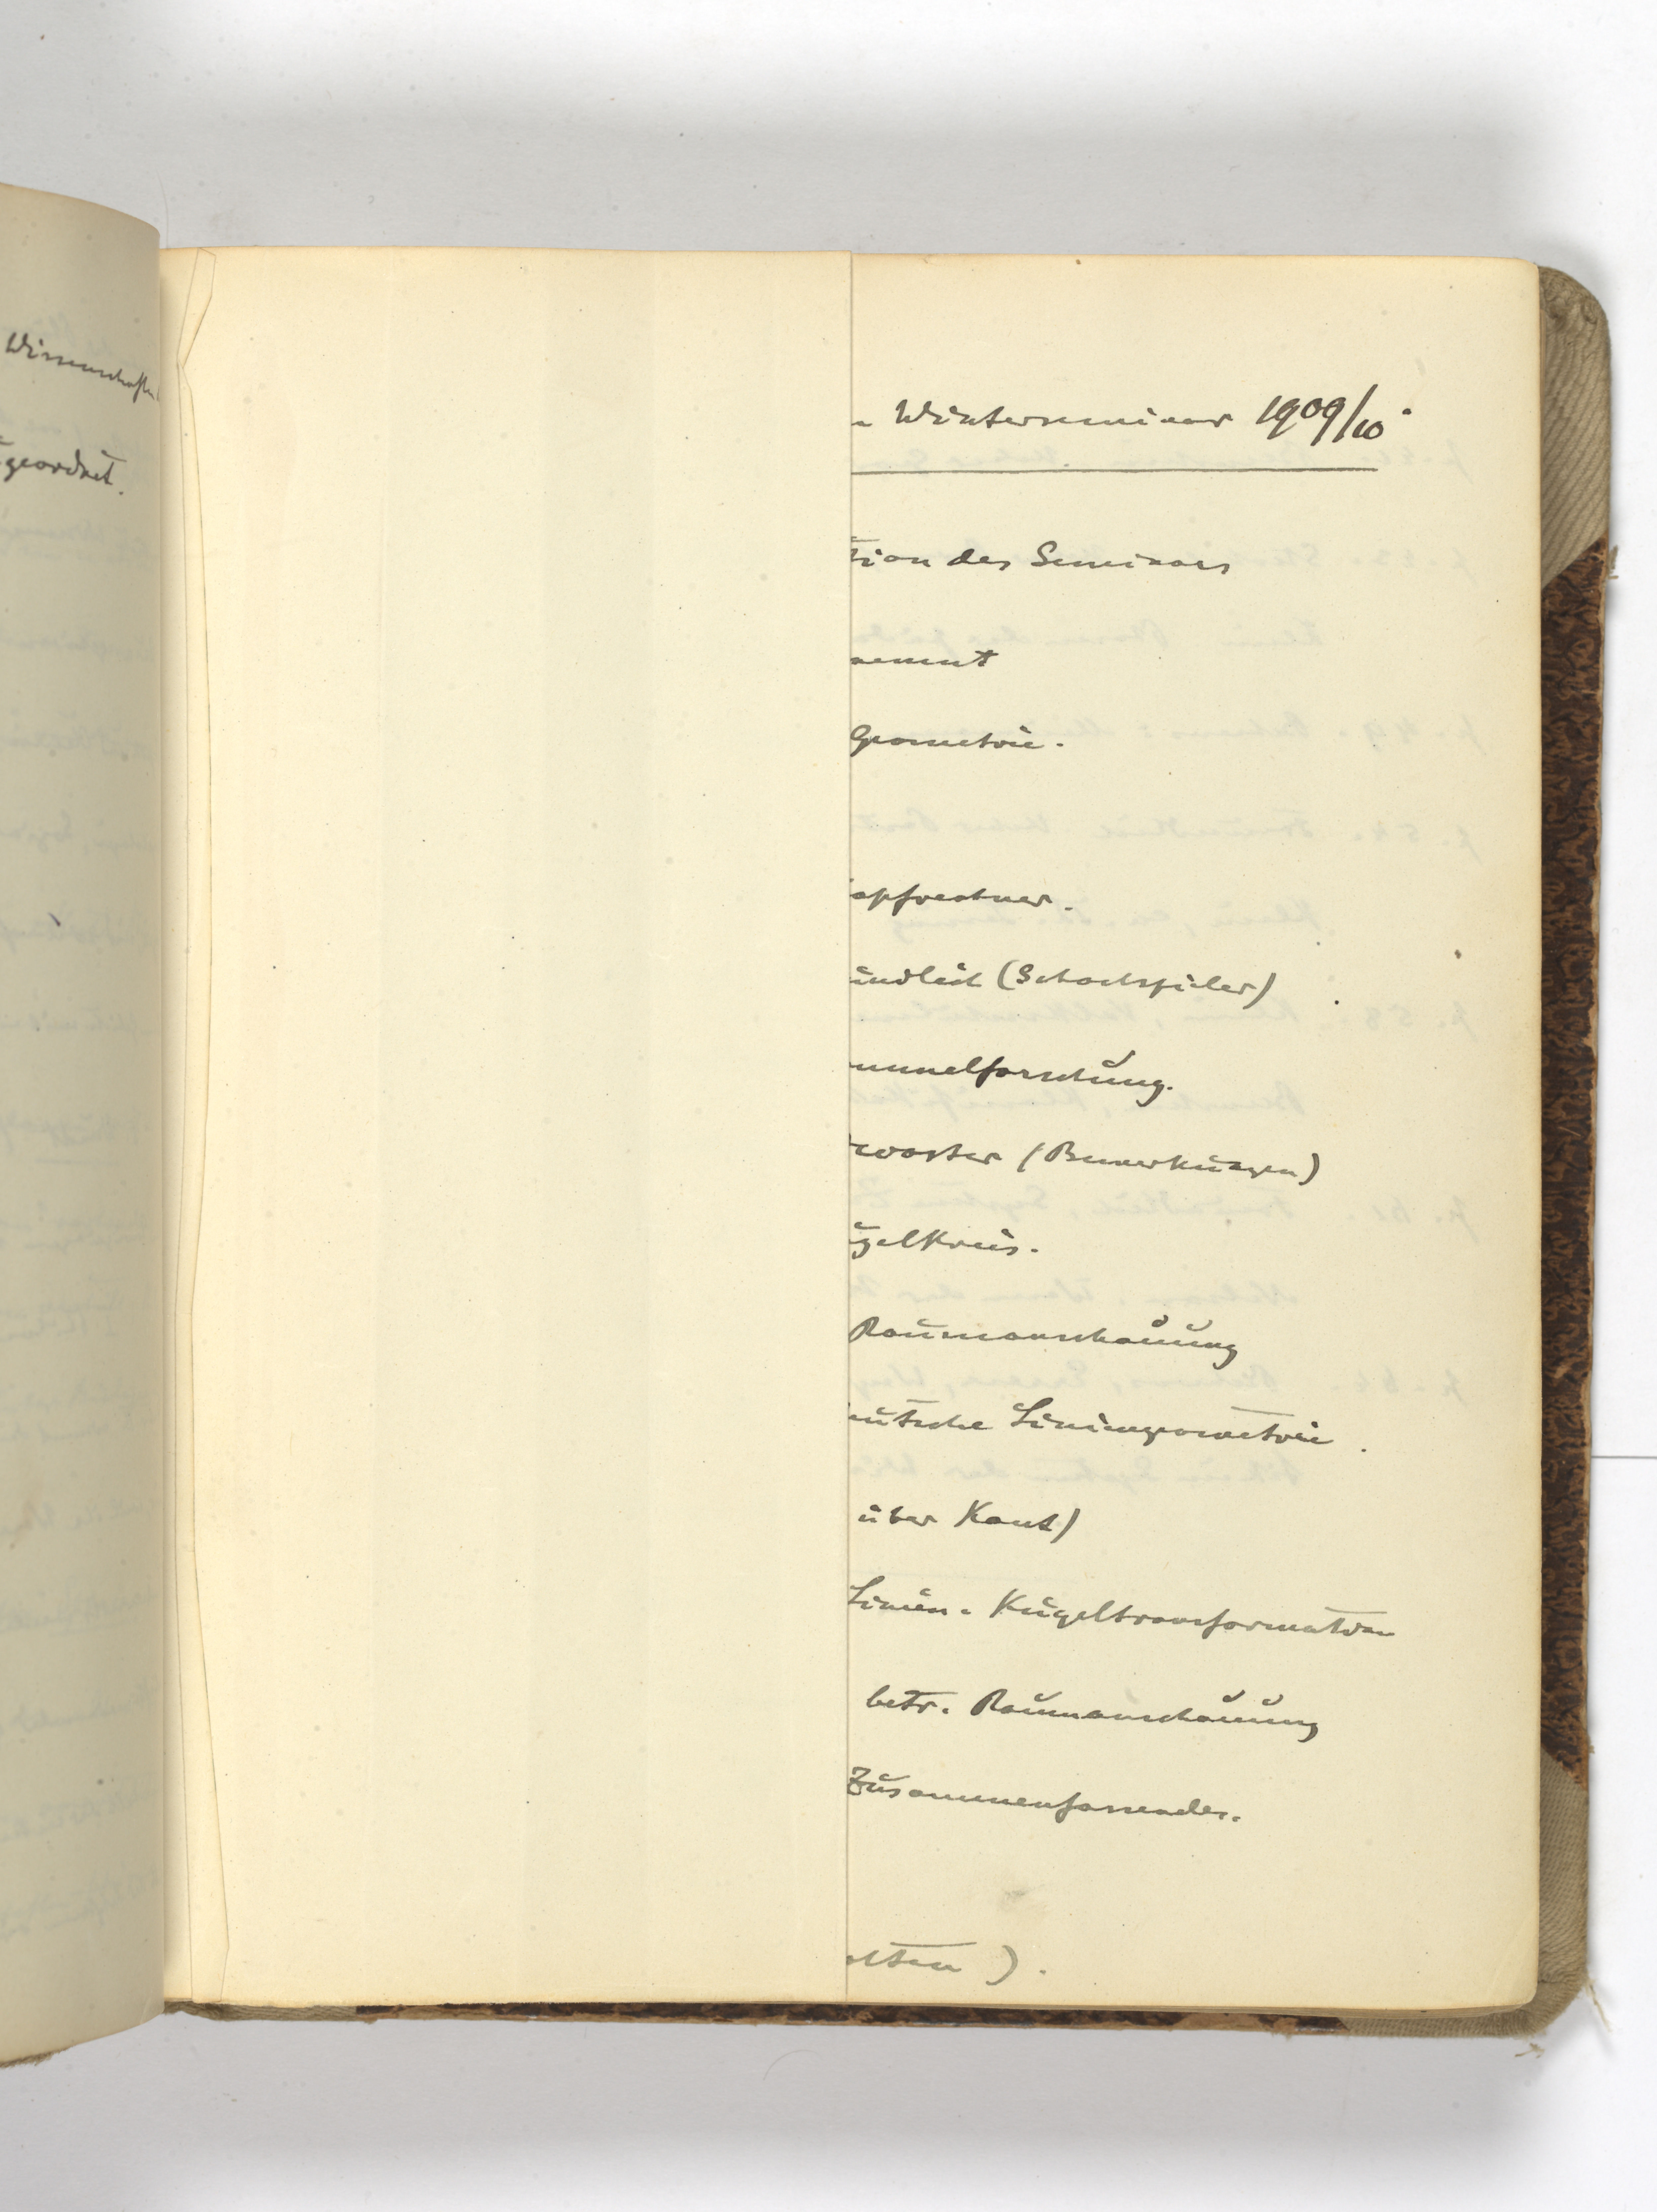 Wissenschaften
geordnet.
Winterseminar 1909/10.
tion des Seminars
nement
Geometrie.
opfrechner.
indlich (Schachspieler)
mmelforschung.
rwortes (Bemerkungen)
ugelkreis.
Raumanschauung
eutsche Liniengeometrie.
über Kant)
Linien-Kugeltransformation
betr. Raumanschauung
Zusammenfassendes.